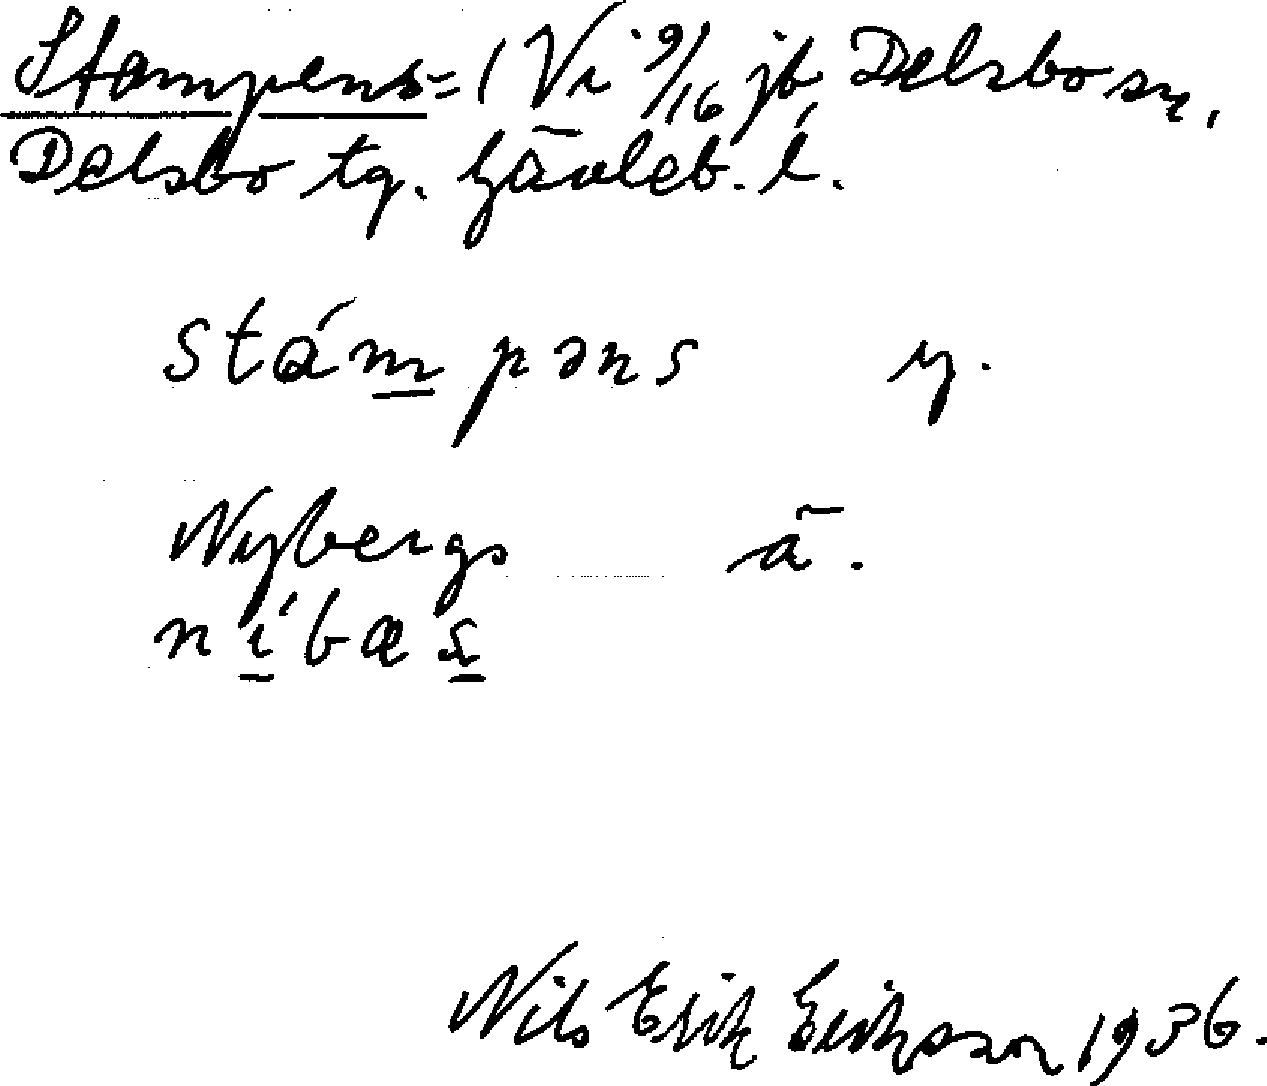 Stampens = 1 Vi 9/16 jb Delsbo sn,
Delsbo tg. Gävleb. l.
stámpəns y.
Nybergs ä.
níbæs
Nils Erik Eriksson 1936.